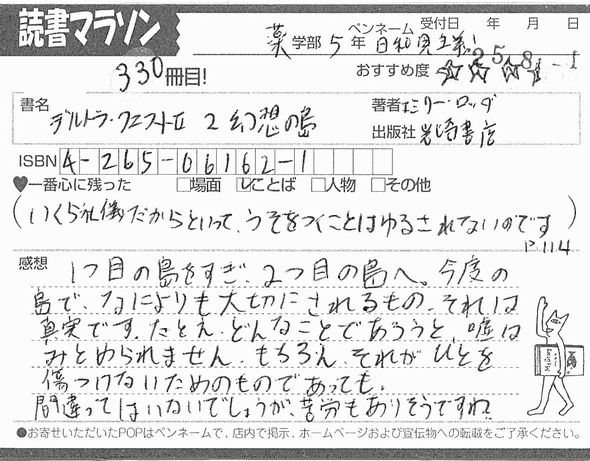 読書マラソン
ペンネーム 受付日 年 月 日
薬学部 5年 日和見主義
25.8.-1
330冊目!
おすすめ度 ☆☆☆☆
書名
デルトラ・クエストII 2 幻想の島
著者 エミリー・ロッダ
出版社 岩崎書店
ISBN 4-265-06162-1
♥一番心に残った □場面 ☑ことば □人物 □その他
(いくら礼儀だからといって、うそをつくことはゆるされないのです)
P.114
感想
1つ目の島をすぎ、2つ目の島へ。今度の
島で、なによりも大切にされるもの、それは
真実です。たとえ、どんなことであろうと、嘘は
みとめられません。もちろん、それがひとを
傷つけないためのものであっても。
間違ってはいないでしょうが、苦労もありそうですね。
●お寄せいただいたPOPはペンネームで、店内で掲示、ホームページおよび宣伝物への転載をご了承ください。